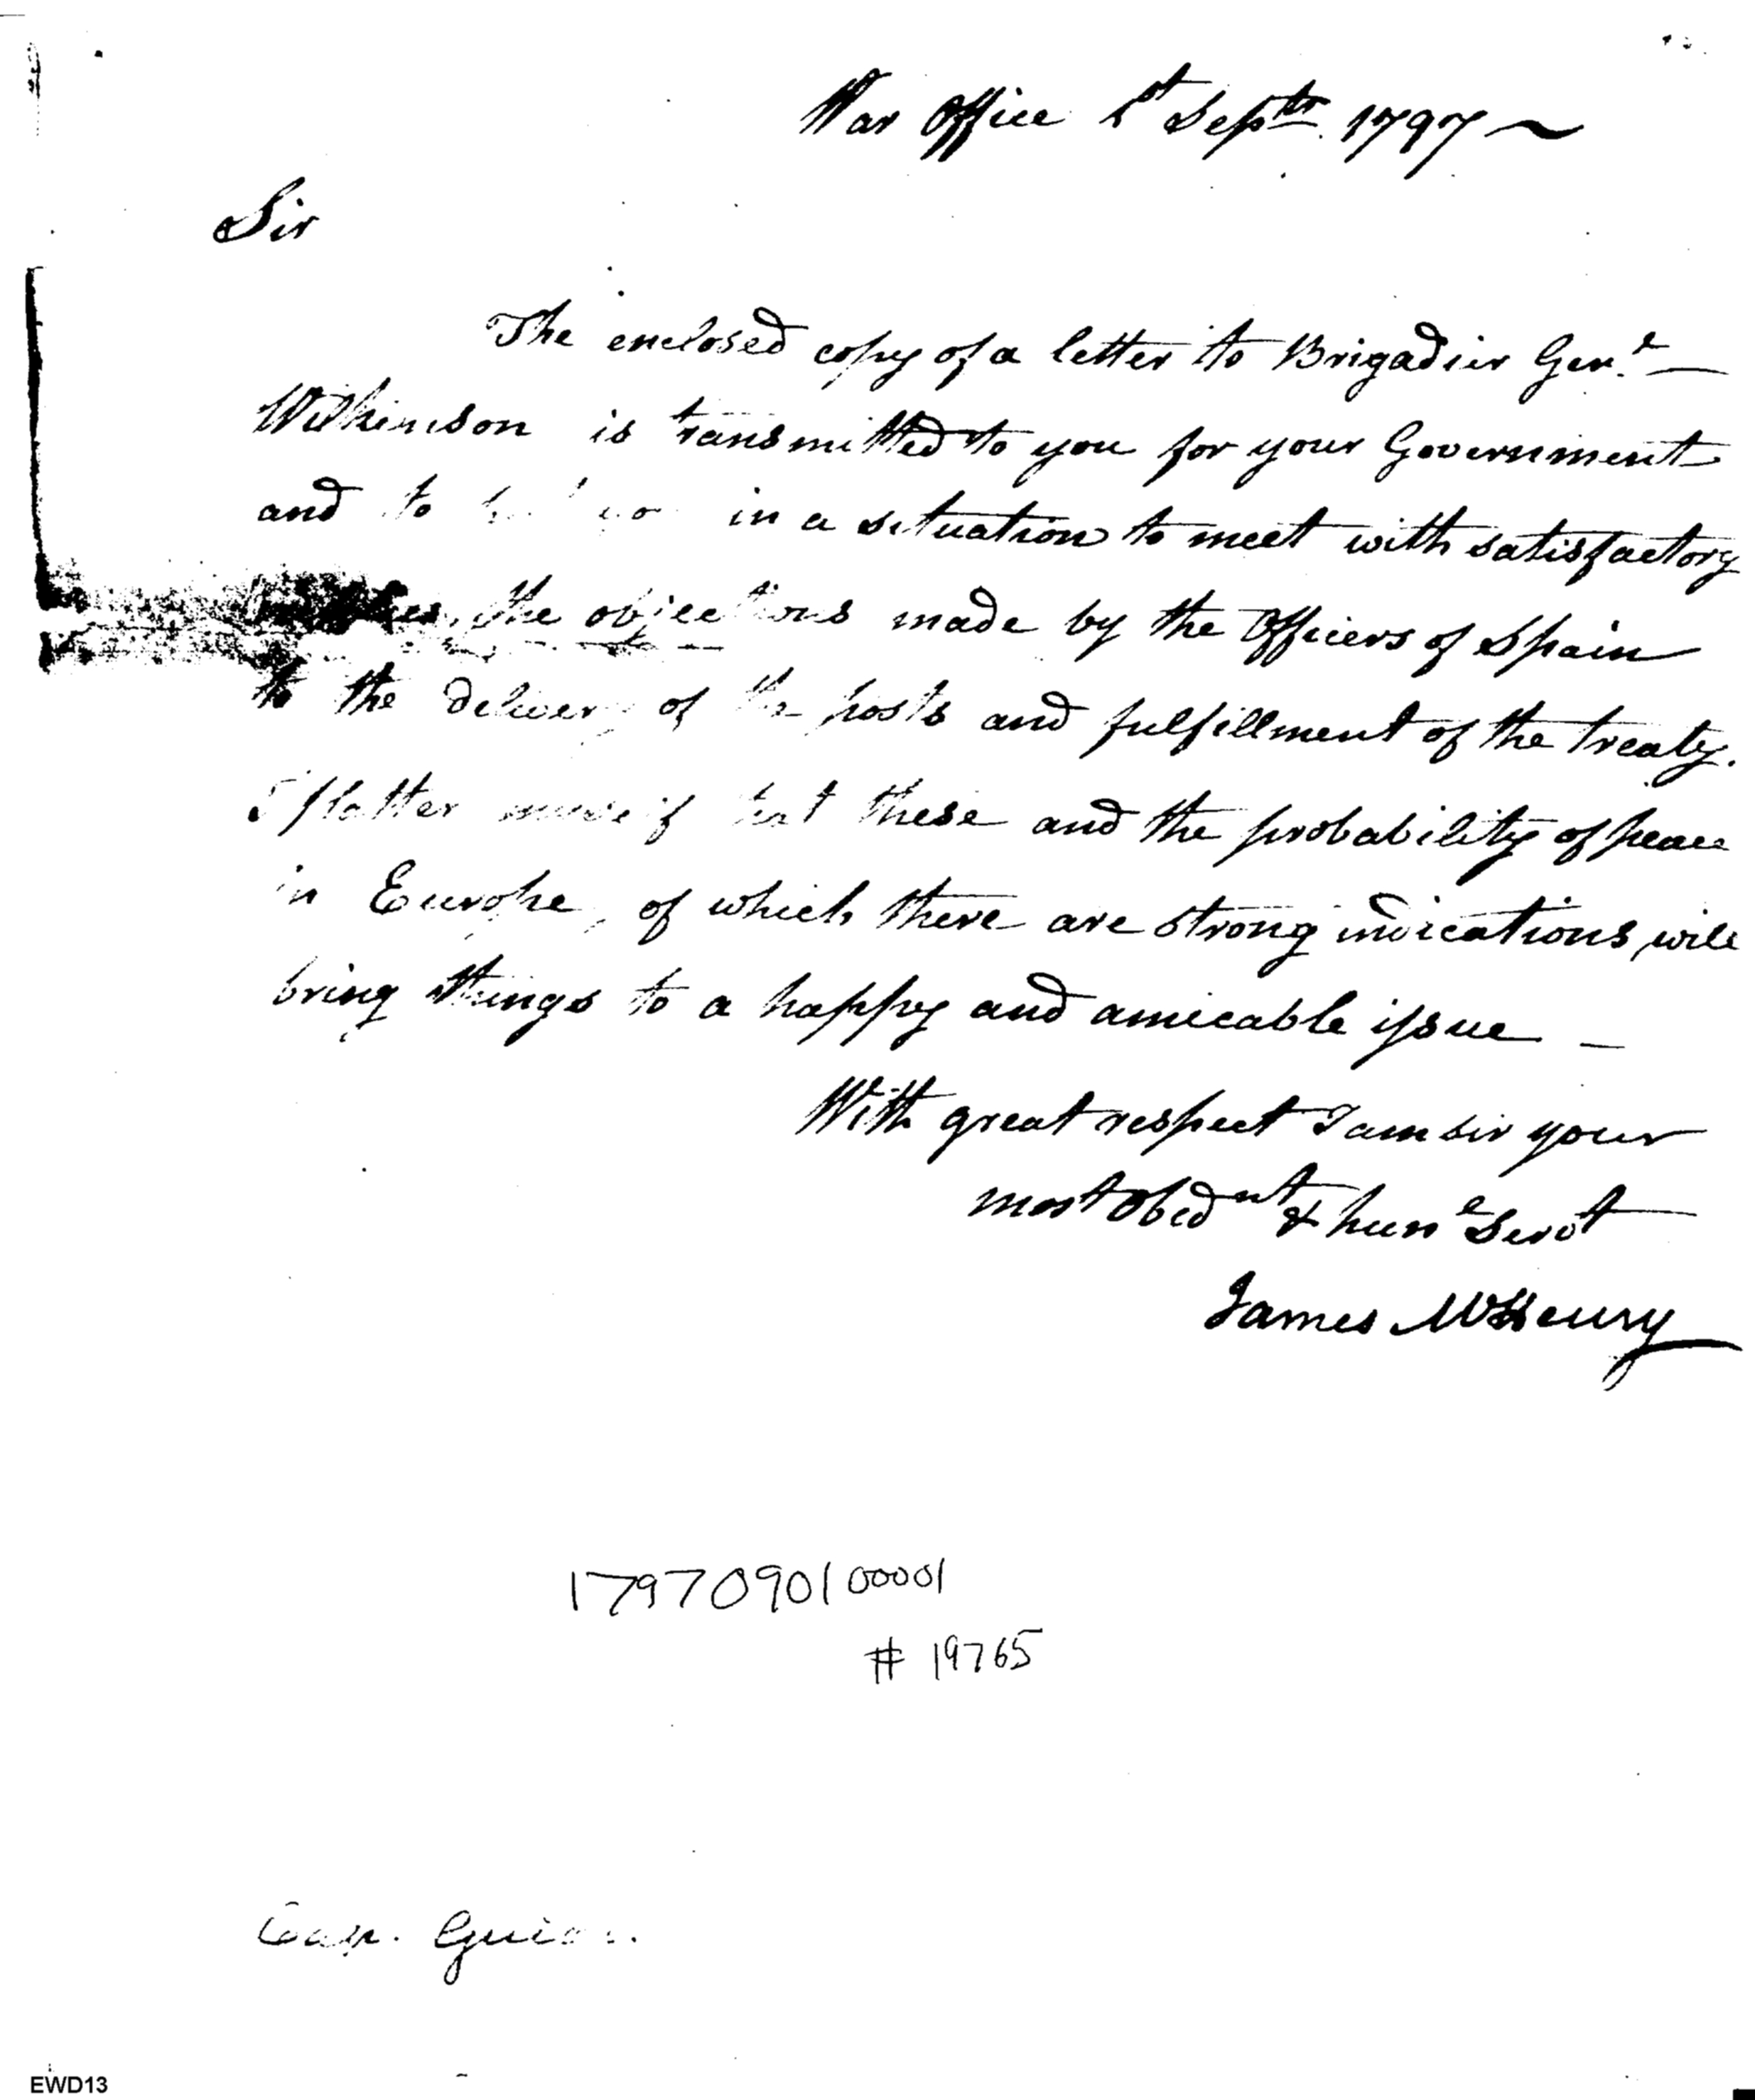 War Office 1st Septbr. 1797 ~
Sir
The enclosed copy of a letter to Brigadier Genl. —
Wilkinson is transmitted to you for your Government
and to in a situation to meet with satisfactory
the objections made by the Officers of Spain
to the delivery of the posts and fulfillment of the treaty.
I flatter myself that these and the probability of peace
in Europe, of which there are strong indications, will
bring things to a happy and amicable issue —
With great respect I am sir your
most Obednt & hume Servt
James McHenry
17970901 00001
# 19765
Cap. Guion.
EWD13